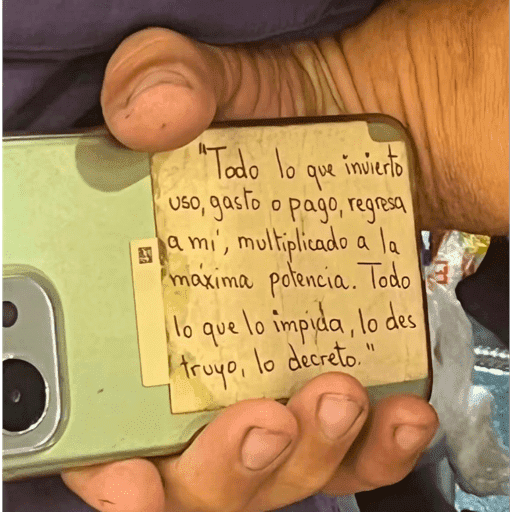 "Todo lo que invierto
uso, gasto o pago, regresa
a mí, multiplicado a la
máxima potencia. Todo
lo que lo impida, lo des
truyo, lo decreto."